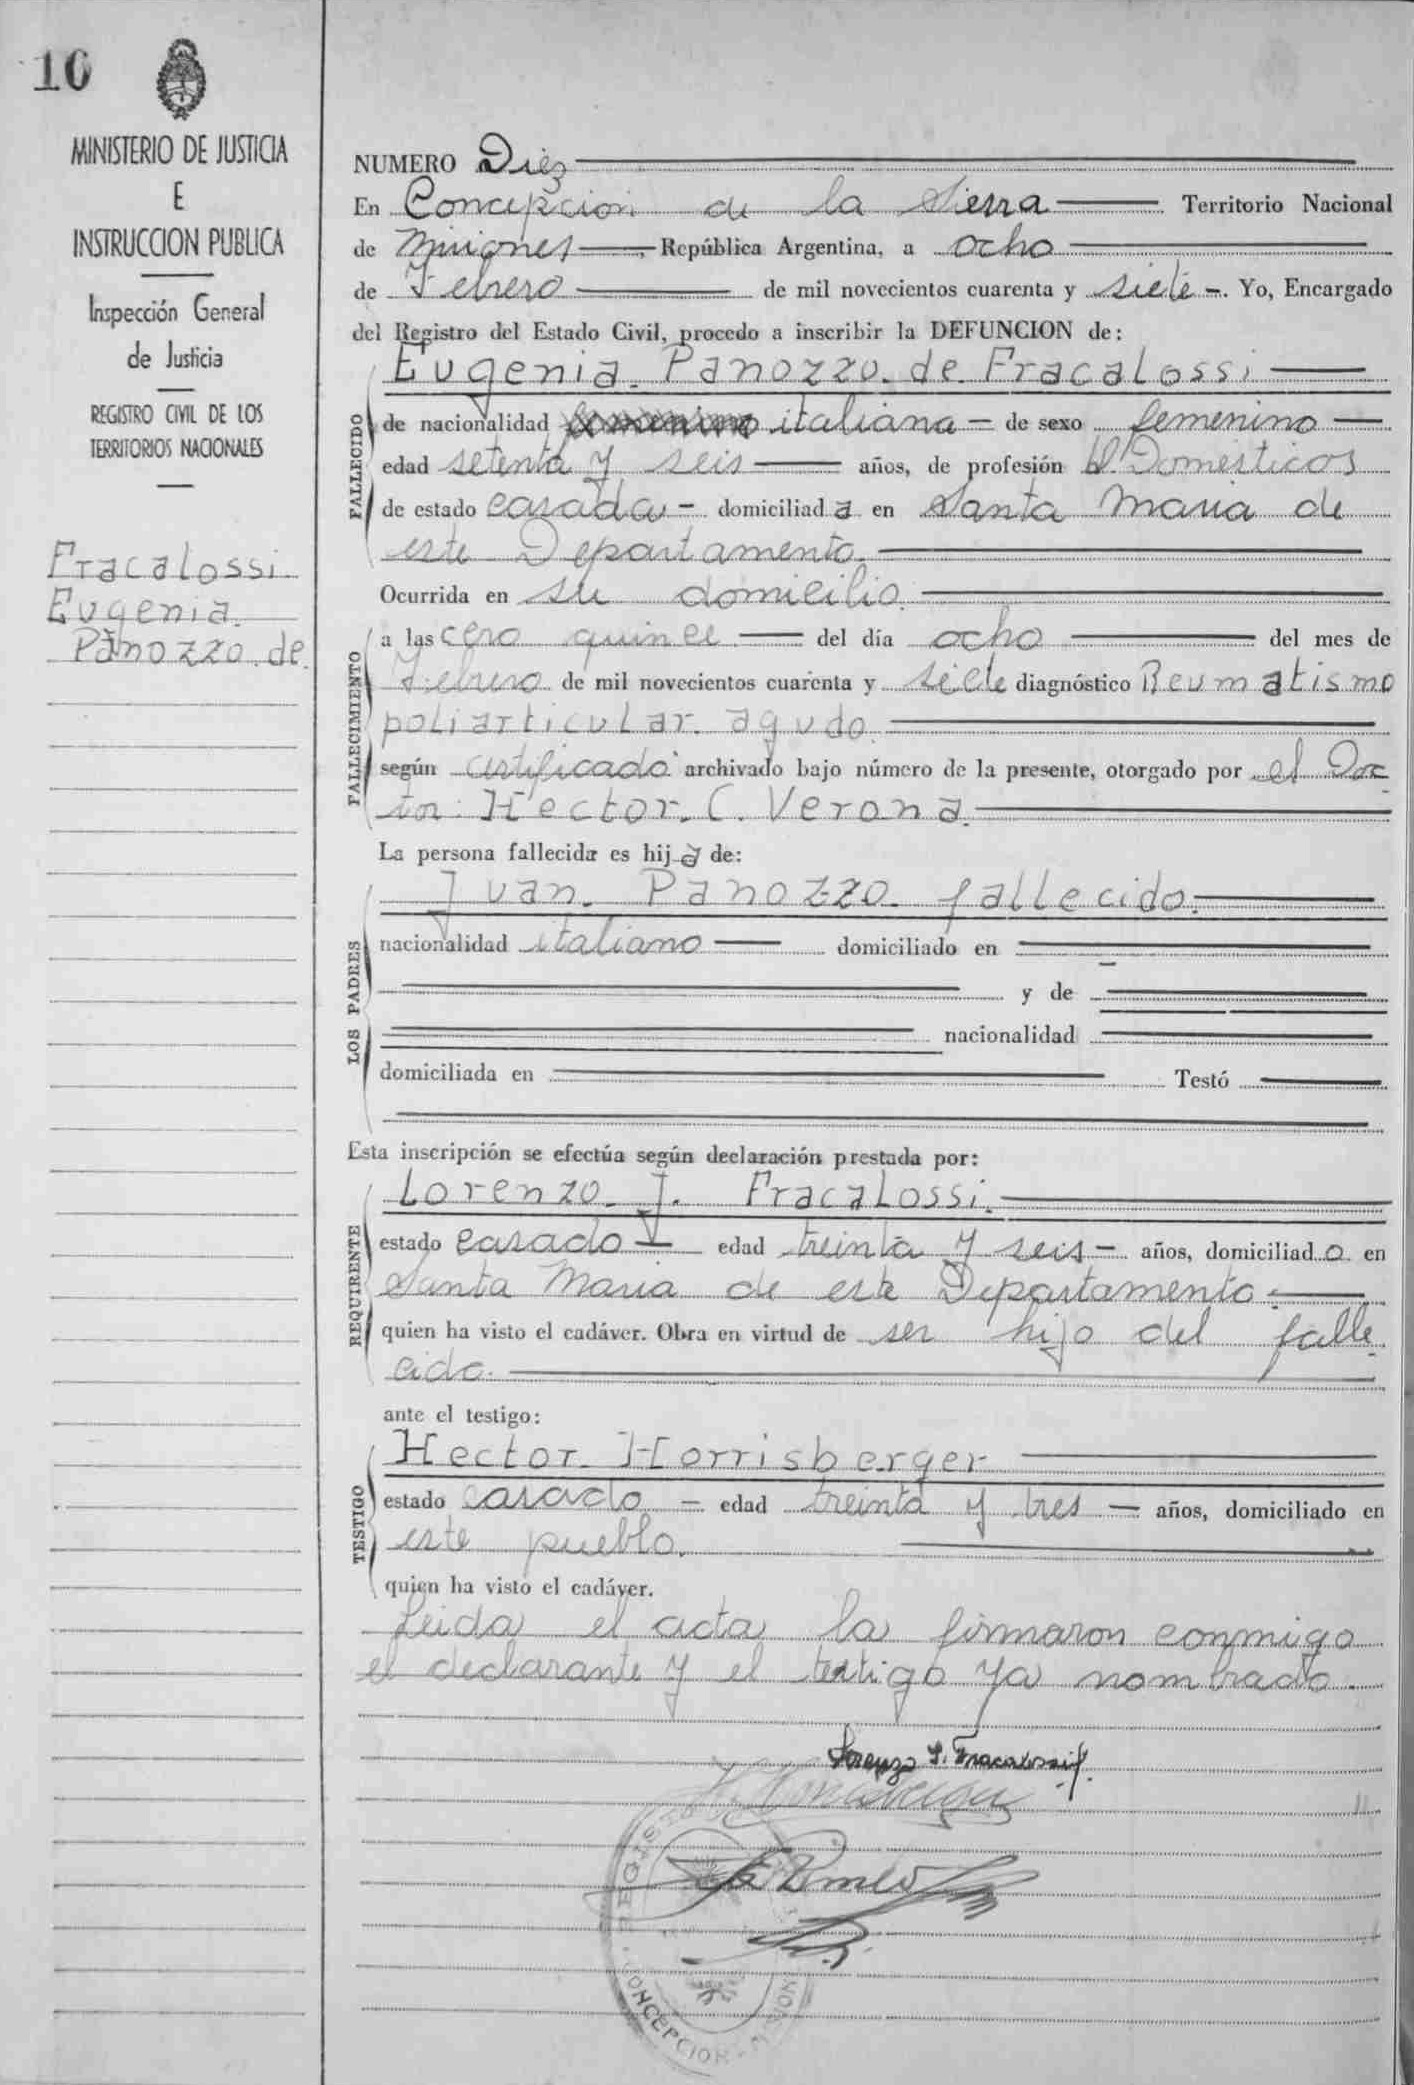 10
MINISTERIO DE JUSTICIA
E
INSTRUCCION PUBLICA
Inspección General
de Justicia
REGISTRO CIVIL DE LOS
TERRITORIOS NACIONALES
Fracalossi
Eugenia.
Panozzo. de.
NUMERO Diez
En Concepcion de la Sierra Territorio Nacional
de Misiones, República Argentina, a ocho
de Febrero de mil novecientos cuarenta y siete. Yo, Encargado
del Registro del Estado Civil, procedo a inscribir la DEFUNCION de:
Eugenia. Panozzo. de. Fracalossi
FALLECIDO
de nacionalidad italiana de sexo femenino
edad setenta y seis años, de profesión Domesticos
de estado casada domiciliada en Santa Maria de
este Departamento.
Ocurrida en su domicilio.
FALLECIMIENTO
a las cero quince del día ocho del mes de
Febrero de mil novecientos cuarenta y siete diagnóstico Reumatismo
poliarticular. agudo.
según certificado archivado bajo número de la presente, otorgado por el Doc
tor. Hector. C. Verona.
La persona fallecida es hija de:
LOS PADRES
Juan. Panozzo. fallecido.
nacionalidad italiano domiciliado en
y de
nacionalidad
domiciliada en Testó
Esta inscripción se efectúa según declaración prestada por:
REQUIRENTE
Lorenzo. J. Fracalossi.
estado casado edad treinta y seis años, domiciliado en
Santa Maria de este Departamento.
quien ha visto el cadáver. Obra en virtud de ser hijo del falle
cido.
ante el testigo:
TESTIGO
Hector. Horrisberger
estado casado edad treinta y tres años, domiciliado en
este pueblo.
quien ha visto el cadáver.
Leida el acta la firmaron conmigo
el declarante y el testigo ya nombrado.
Lorenzo J. Fracalossi
CONCEPCION